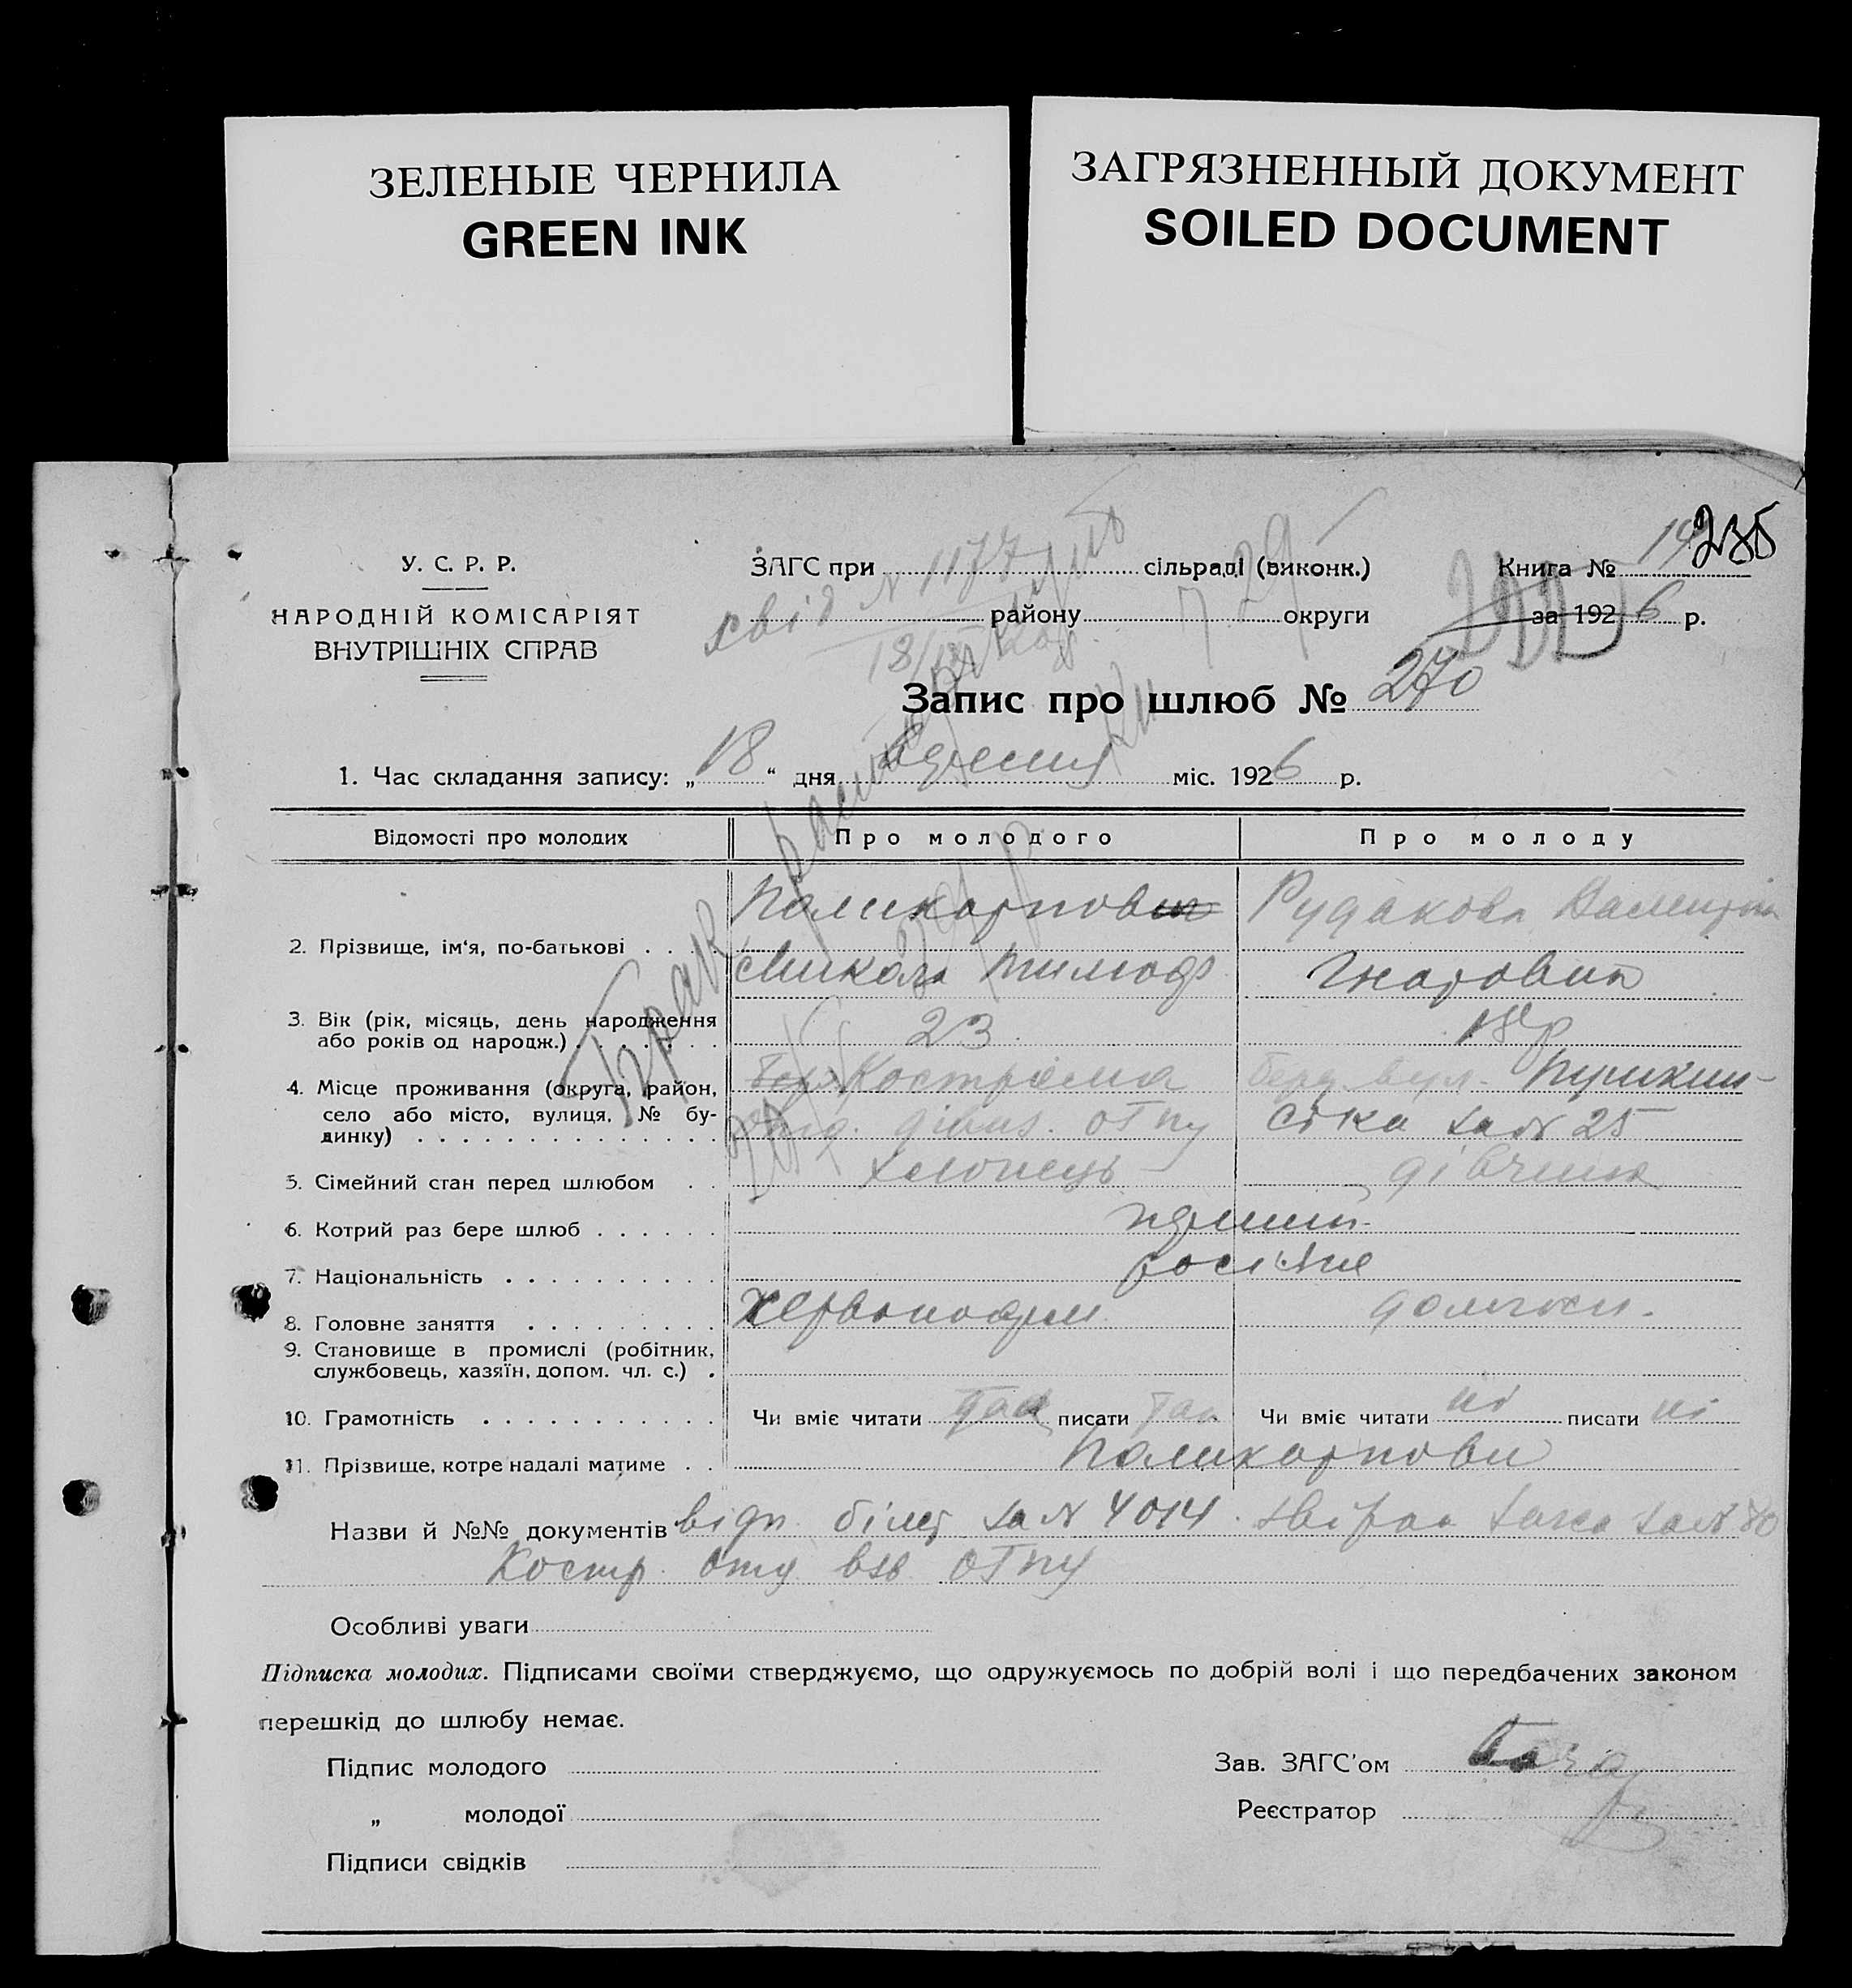 ЗЕЛЕНЫЕ ЧЕРНИЛА
GREEN INK
ЗАГРЯЗНЕННЫЙ ДОКУМЕНТ
SOILED DOCUMENT
У. С. Р. Р.
НАРОДНІЙ КОМІСАРІЯТ
ВНУТРІШНІХ СПРАВ
ЗАГС при сільраді (виконк.)
району округи
свід N 1177
Книга №
235
за 1926 р.
Запис про шлюб № 270
1. Час складання запису: „18“ дня міс. 1926 р.
Відомості про молодих Про молодого Про молоду
Брак
2. Прізвище, ім'я, по-батькові
Поликарпов Рудакова
Микола Тимоф. Гнатовна
3. Вік (рік, місяць, день народження
або років од народж.) 23 18 р
4. Місце проживання (округа, район,
село або місто, вулиця, № бу-
динку)
Кострома вул. Пушкин-
дівиз. ОГПУ ська за № 25
5. Сімейний стан перед шлюбом хлопець дівчина
6. Котрий раз бере шлюб
7. Національність росіяне
8. Головне заняття Червоноарм.
9. Становище в промислі (робітник,
службовець, хазяїн, допом. чл. с.)
10. Грамотність Чи вміє читати так писати так Чи вміє читати ні писати ні
11. Прізвище, котре надалі матиме Поликарпови
Назви й №№ документів відп. білет за № 4014
Костр. отд. ОГПУ
Особливі уваги
Підписка молодих. Підписами своїми стверджуємо, що одружуємось по добрій волі і що передбачених законом
перешкід до шлюбу немає.
Підпис молодого Зав. ЗАГС'ом
„ молодої Реєстратор
Підписи свідків